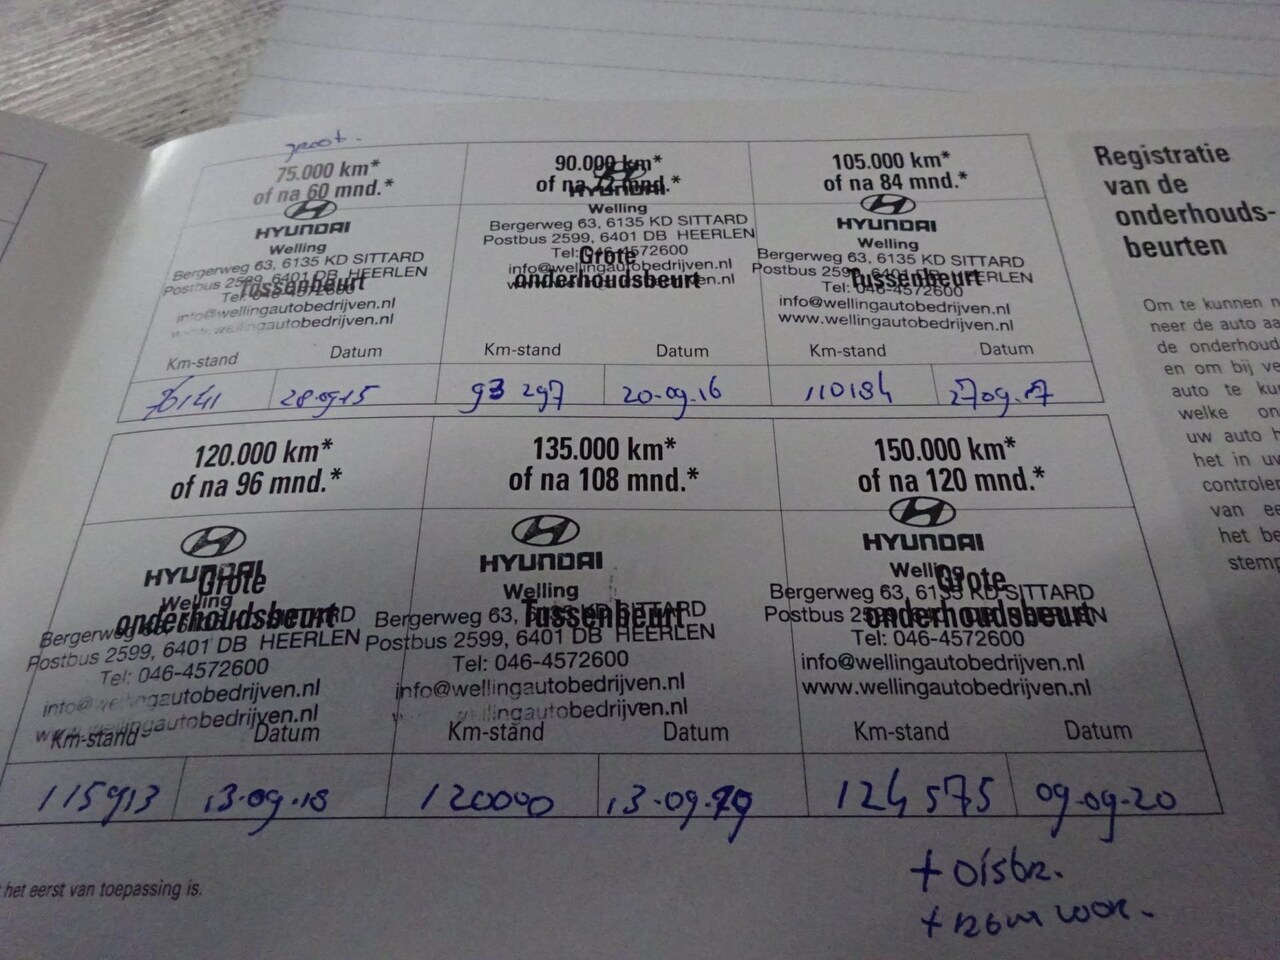 groot.
75.000 km*
of na 60 mnd.*
HYUNDAI
Welling
Bergerweg 63, 6135 KD SITTARD
Postbus 2599, 6401 DB HEERLEN
Tussenbeurt
Tel: 046-4572600
info@wellingautobedrijven.nl
www.wellingautobedrijven.nl
Km-stand Datum
76141 28-09-15
90.000 km*
of na 72 mnd.*
HYUNDAI
Welling
Bergerweg 63, 6135 KD SITTARD
Postbus 2599, 6401 DB HEERLEN
Tel: 046-4572600
Grote
info@wellingautobedrijven.nl
onderhoudsbeurt
www.wellingautobedrijven.nl
Km-stand Datum
93 297 20-09-16
105.000 km*
of na 84 mnd.*
HYUNDAI
Welling
Bergerweg 63, 6135 KD SITTARD
Postbus 2599, 6401 DB HEERLEN
Tussenbeurt
Tel: 046-4572600
info@wellingautobedrijven.nl
www.wellingautobedrijven.nl
Km-stand Datum
110184 27 09-17
120.000 km*
of na 96 mnd.*
HYUNDAI
Grote
Welling
onderhoudsbeurt
Bergerweg 63, 6135 KD SITTARD
Postbus 2599, 6401 DB HEERLEN
Tel: 046-4572600
info@wellingautobedrijven.nl
www.wellingautobedrijven.nl
Km-stand Datum
115913 13-09-18
135.000 km*
of na 108 mnd.*
HYUNDAI
Welling
Bergerweg 63, 6135 KD SITTARD
Tussenbeurt
Postbus 2599, 6401 DB HEERLEN
Tel: 046-4572600
info@wellingautobedrijven.nl
wellingautobedrijven.nl
Km-stand Datum
120000 13-09-19
150.000 km*
of na 120 mnd.*
HYUNDAI
Welling
Grote
Bergerweg 63, 6135 KD SITTARD
onderhoudsbeurt
Postbus 2599, 6401 DB HEERLEN
Tel: 046-4572600
info@wellingautobedrijven.nl
www.wellingautobedrijven.nl
Km-stand Datum
124575 09-09-20
het eerst van toepassing is.
Registratie
van de
onderhouds-
beurten
Om te kunnen
neer de auto
de onderhoud
en om bij
auto te
welke
uw auto
het in
controler
van
het
stemp